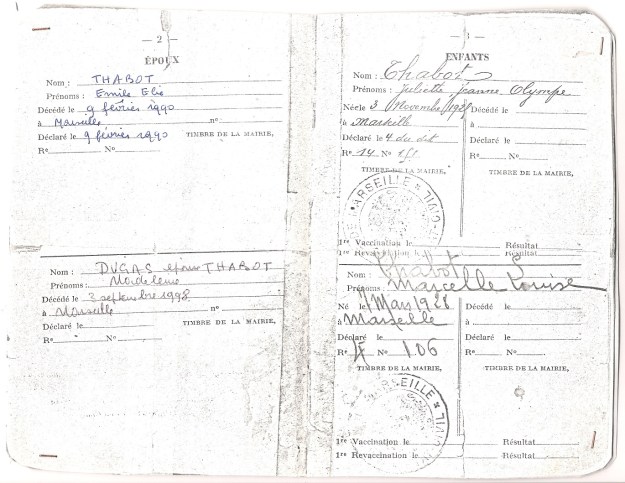 — 2 —
ÉPOUX
Nom : THABOT
Prénoms : Emile Elie
Décédé le 9 février 1990
à Marseille n°
Déclaré le 9 février 1990 TIMBRE DE LA MAIRIE,
Re No
Nom : DUGAS épouse THABOT
Prénoms : Madeleine
Décédé le 3 septembre 1998
à Marseille n°
Déclaré le
Re No TIMBRE DE LA MAIRIE,
ENFANTS
Nom : Thabot
Prénoms : Juliette, Jeanne, Olympe
Née le 3 Novembre Décédé le
à Marseille à
Déclaré le 4 du dit Déclaré le
Re 14 No Re No
TIMBRE DE LA MAIRIE, TIMBRE DE LA MAIRIE,
MARSEILLE
1re Vaccination le Résultat
1re Revaccination le Résultat
Nom : Thabot
Prénoms Marcelle Louise
Né le Mars 1928 Décédé le
à Marseille à
Déclaré le Déclaré le
Re No 106 Re No
TIMBRE DE LA MAIRIE, TIMBRE DE LA MAIRIE,
MARSEILLE
1re Vaccination le Résultat
1re Revaccination le Résultat